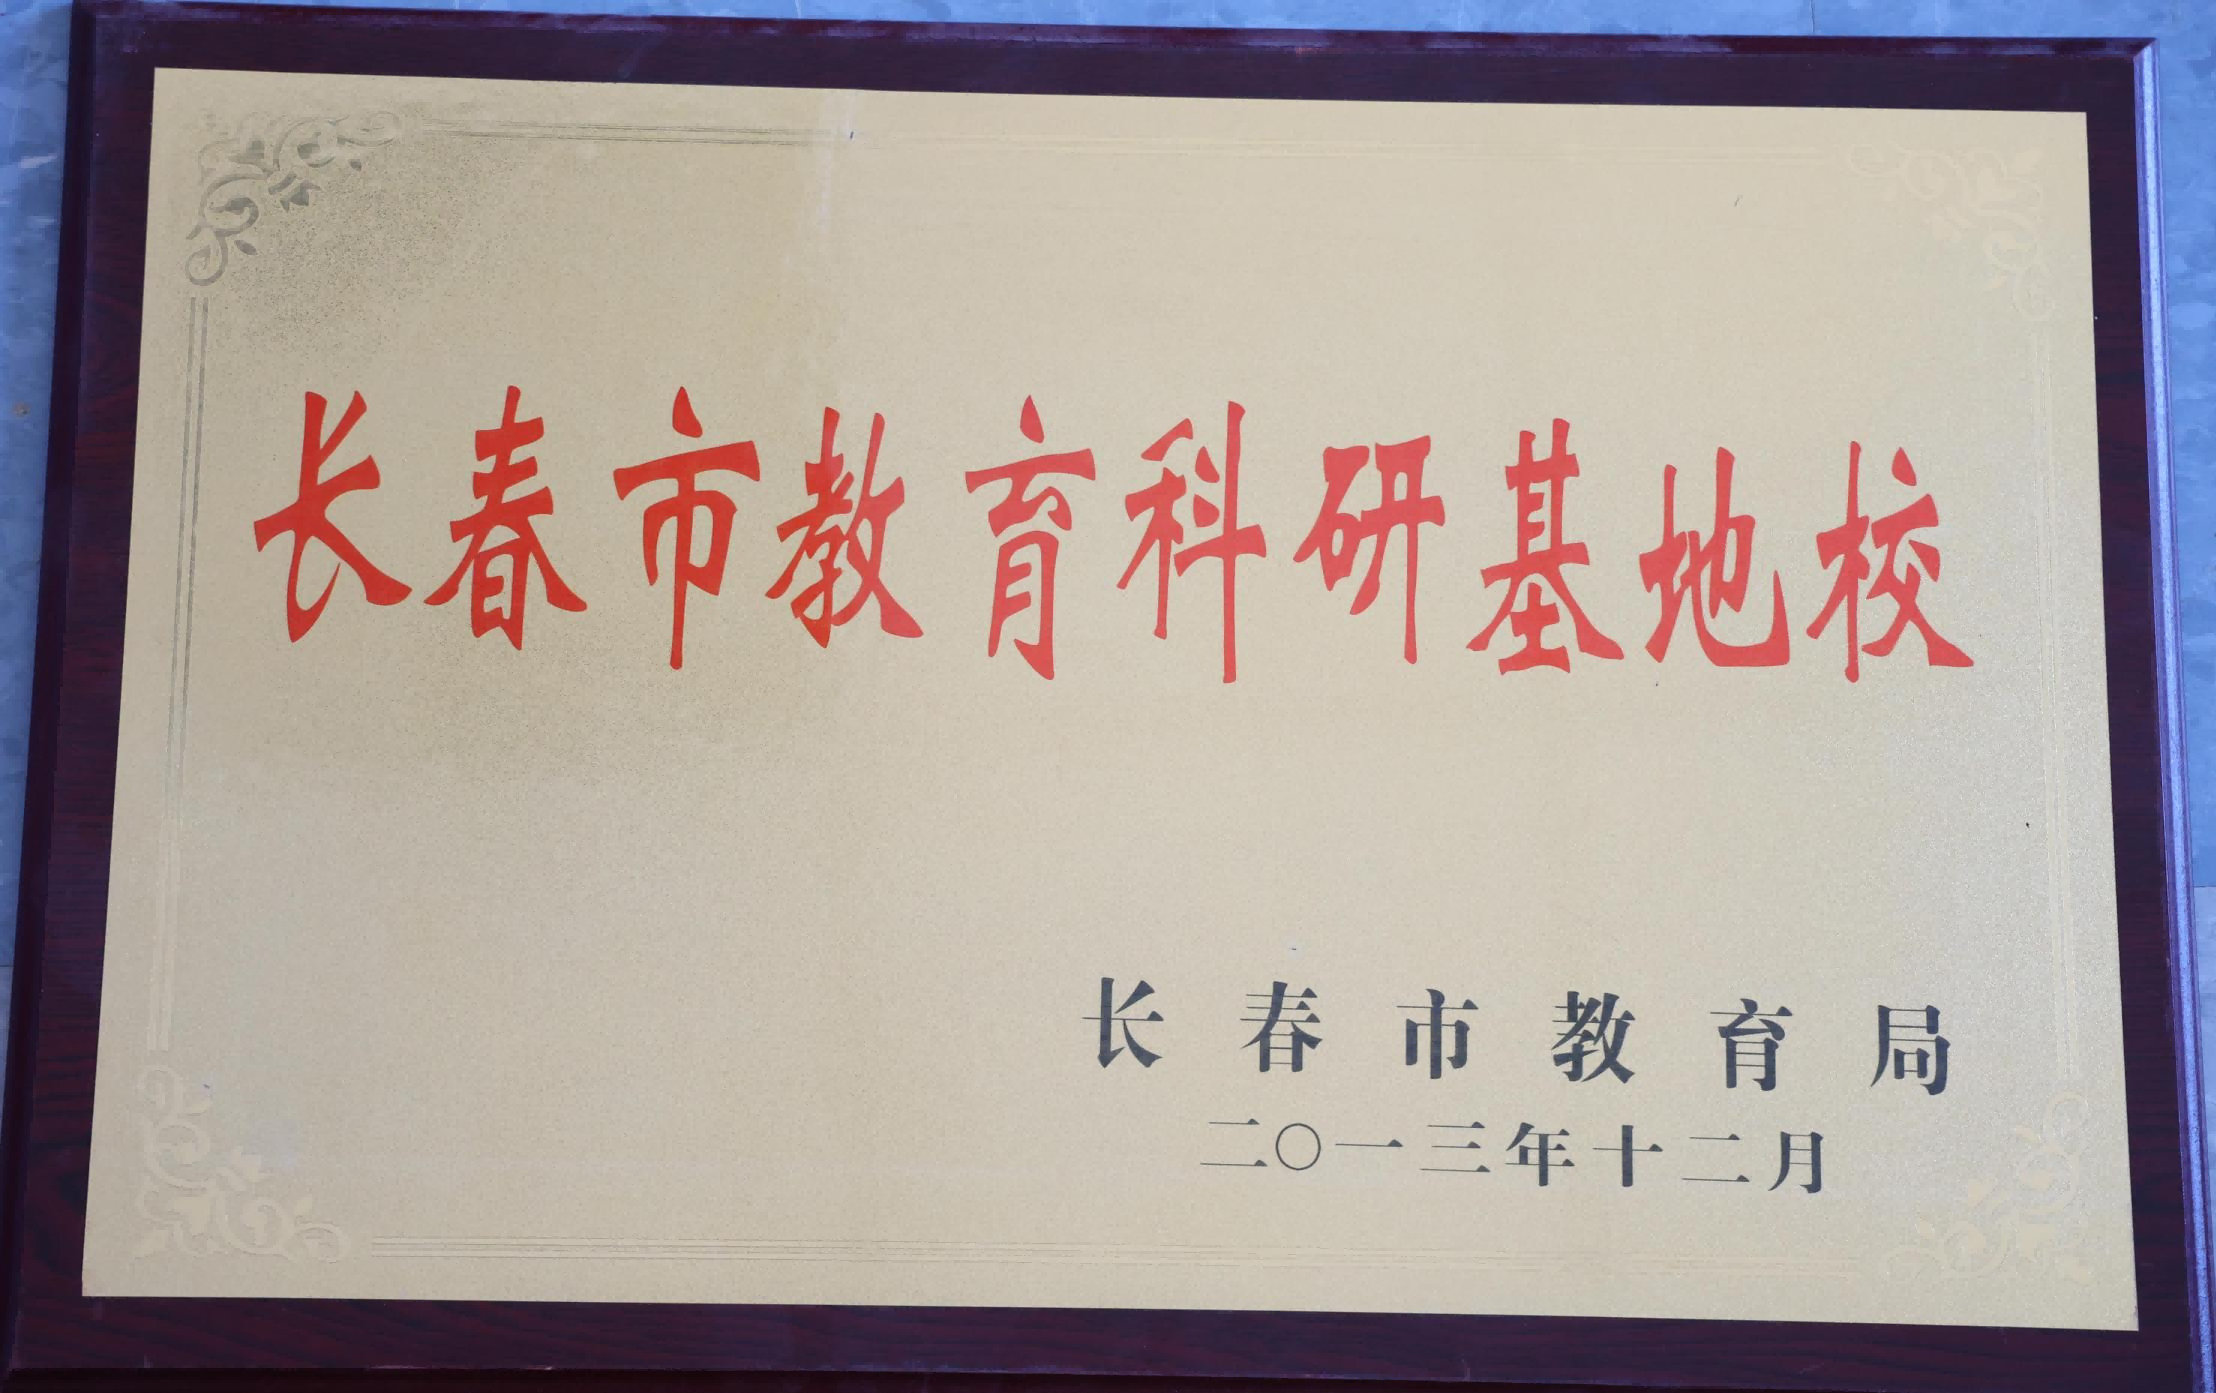 长春市教育科研基地校
长春市教育局
二〇一三年十二月